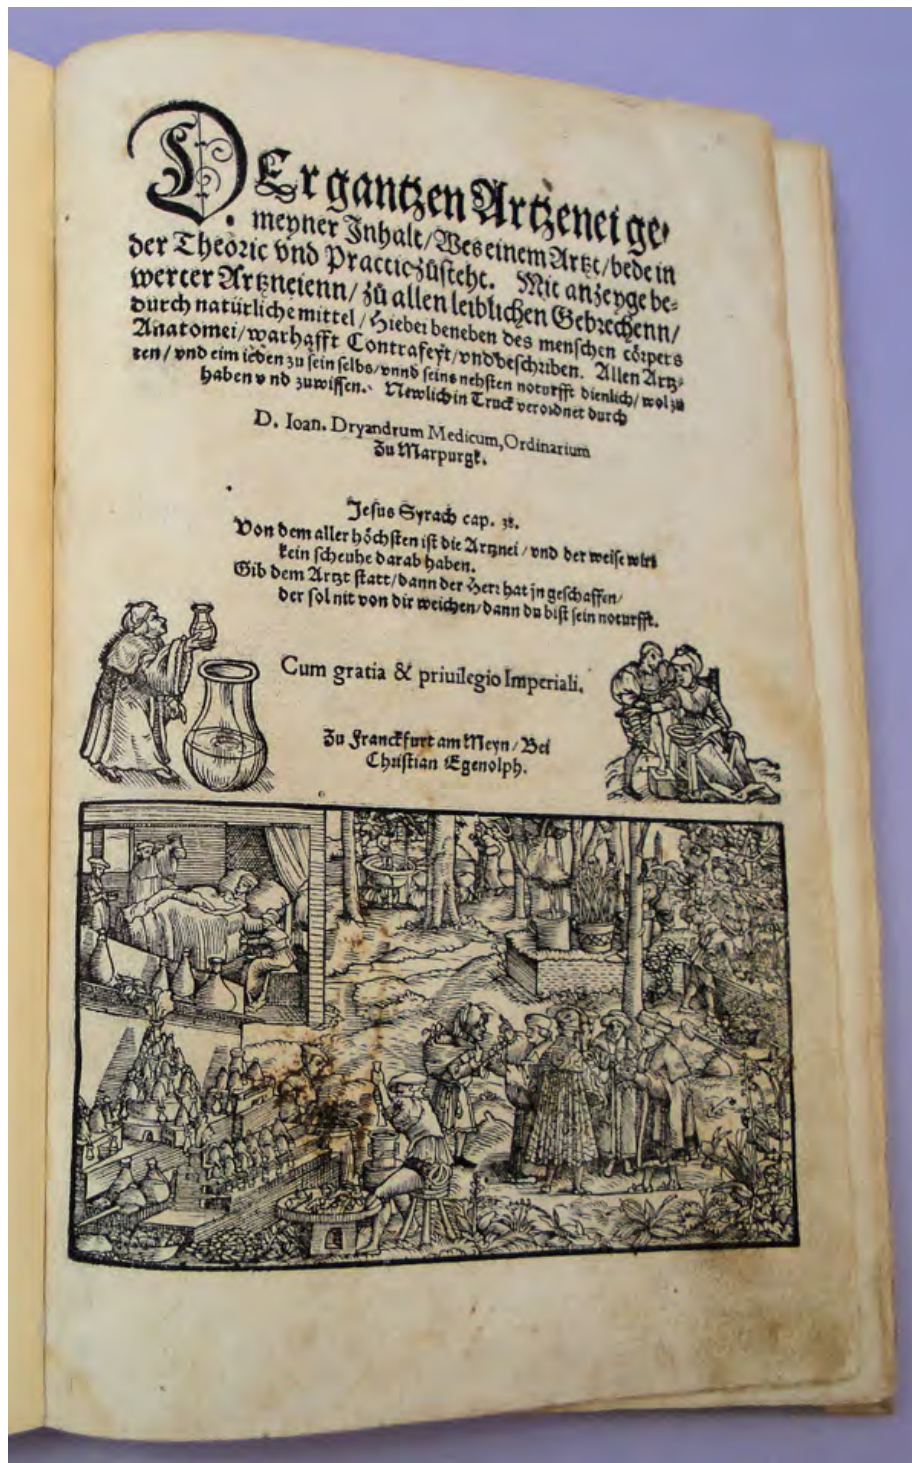 DEr gantzen Artzenei ge-
meyner Inhalt/Wes einem Artzt/bede in
der Theoric vnd Practic zůsteht. Mit anzeyge be-
werter Artzneienn/zů allen leiblichen Gebrechenn/
durch natürliche mittel/Hiebei beneben des menschen cörpers
Anatomei/warhafft Contrafeyt/vnd beschriben. Allen Artz-
ten/vnd eim ieden zu sein selbs/vnnd seins nehsten noturfft dienlich/wol zu
haben vnd zuwissen. Newlich in Truck verordnet durch
D. Ioan. Dryandrum Medicum, Ordinarium
Zu Marpurgk.
Jesus Syrach cap. 38.
Von dem aller höchsten ist die Artznei/vnd der weise wirt
kein scheuhe darab haben.
Gib dem Artzt statt/dann der Herr hat jn geschaffen/
der sol nit von dir weichen/dann du bist sein noturfft.
Cum gratia & priuilegio Imperiali.
Zu Franckfurt am Meyn/Bei
Christian Egenolph.